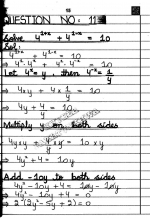 QUESTION NO: 11
Solve 4^{1+x} + 4^{1-x} = 10
Sol:
4^{1+x} + 4^{1-x} = 10
⇒ 4^1·4^x + 4^1·4^{-x} = 10
Let 4^x = y , then 4^{-x} = 1/y
⇒ 4xy + 4x 1/y = 10
⇒ 4y + 4/y = 10
Multiply y on both sides
4yxy + 4/y xy = 10xy
⇒ 4y² + 4 = 10y
Add -10y to both sides
4y² - 10y + 4 = 10y - 10y
⇒ 4y² - 10y + 4 = 0
⇒ 2(2y² - 5y + 2) = 0